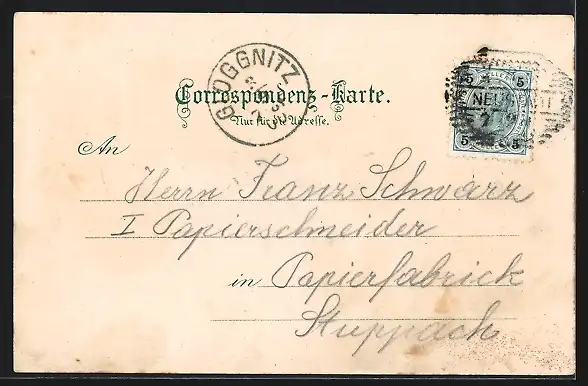 GLOGGNITZ
5 5
NEU
5 5
Correspondenz-Karte.
Nur für die Adresse.
An
Herrn Franz Schwarz
I Papierschneider
in Papierfabrick
Stuppach